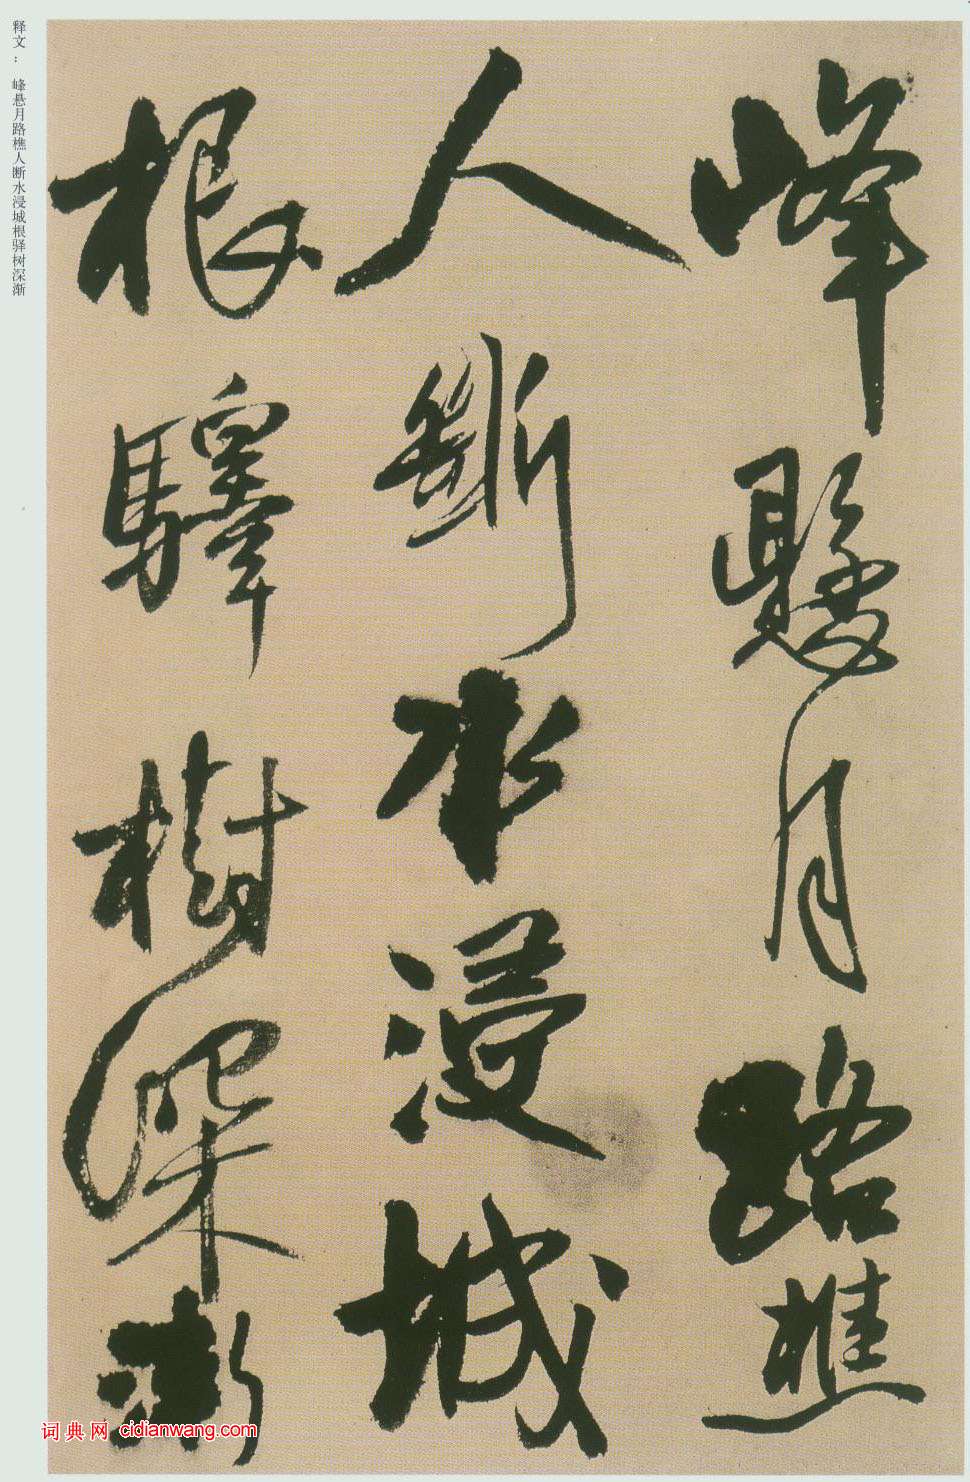 峰懸月路樵
人斷水浸城
根驛樹深漸
释文： 峰悬月路樵人断水浸城根驿树深渐
词典网 cidianwang.com